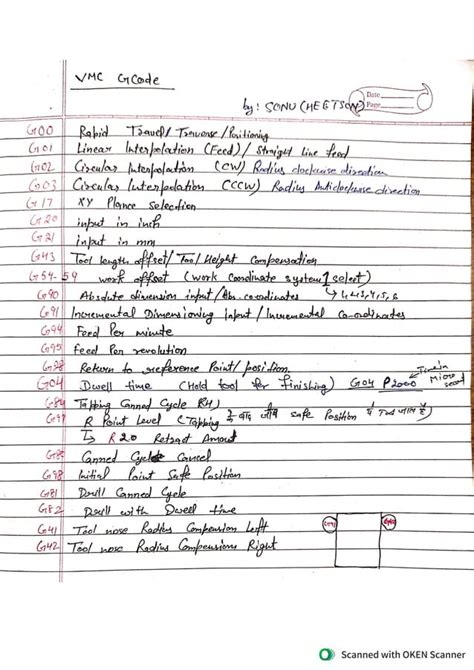 VMC GCode
Date
Page
by: SONU (HEGTSON)
G00 Rapid Travel/Traverse/Positioning
G01 Linear Interpolation (Feed)/ Straight Line feed
G02 Circular Interpolation (CW) Radius clockwise direction
G03 Circular Interpolation (CCW) Radius Anticlockwise direction
G17 XY Plance Selection
G20 input in inch
G21 input in mm
G43 Tool length offset/ Tool Height Compensation
G54-59 work offset (work coordinate system 1 select)
G90 Absolute dimension input/Abs. co-ordinates
G91 Incremental Dimensioning input/Incremental co-ordinates
G94 Feed Per minute
G95 feed Per revolution
G28 Return to reference Point/position.
G04 Dwell time (Hold tool for finishing) G04 P2000 Time in Micro second
G84 Tapping Canned Cycle RH)
G99 R Point Level (Tapping के बाद safe Position
R20 Retract Amount
G80 Canned Cycle Cancel
G98 Initial Point Safe Position
G81 Drill Canned Cycle
G82 Drill with Dwell time
G41 Tool nose Radius Compension Left
G42 Tool nose Radius Compensions Right
Scanned with OKEN Scanner